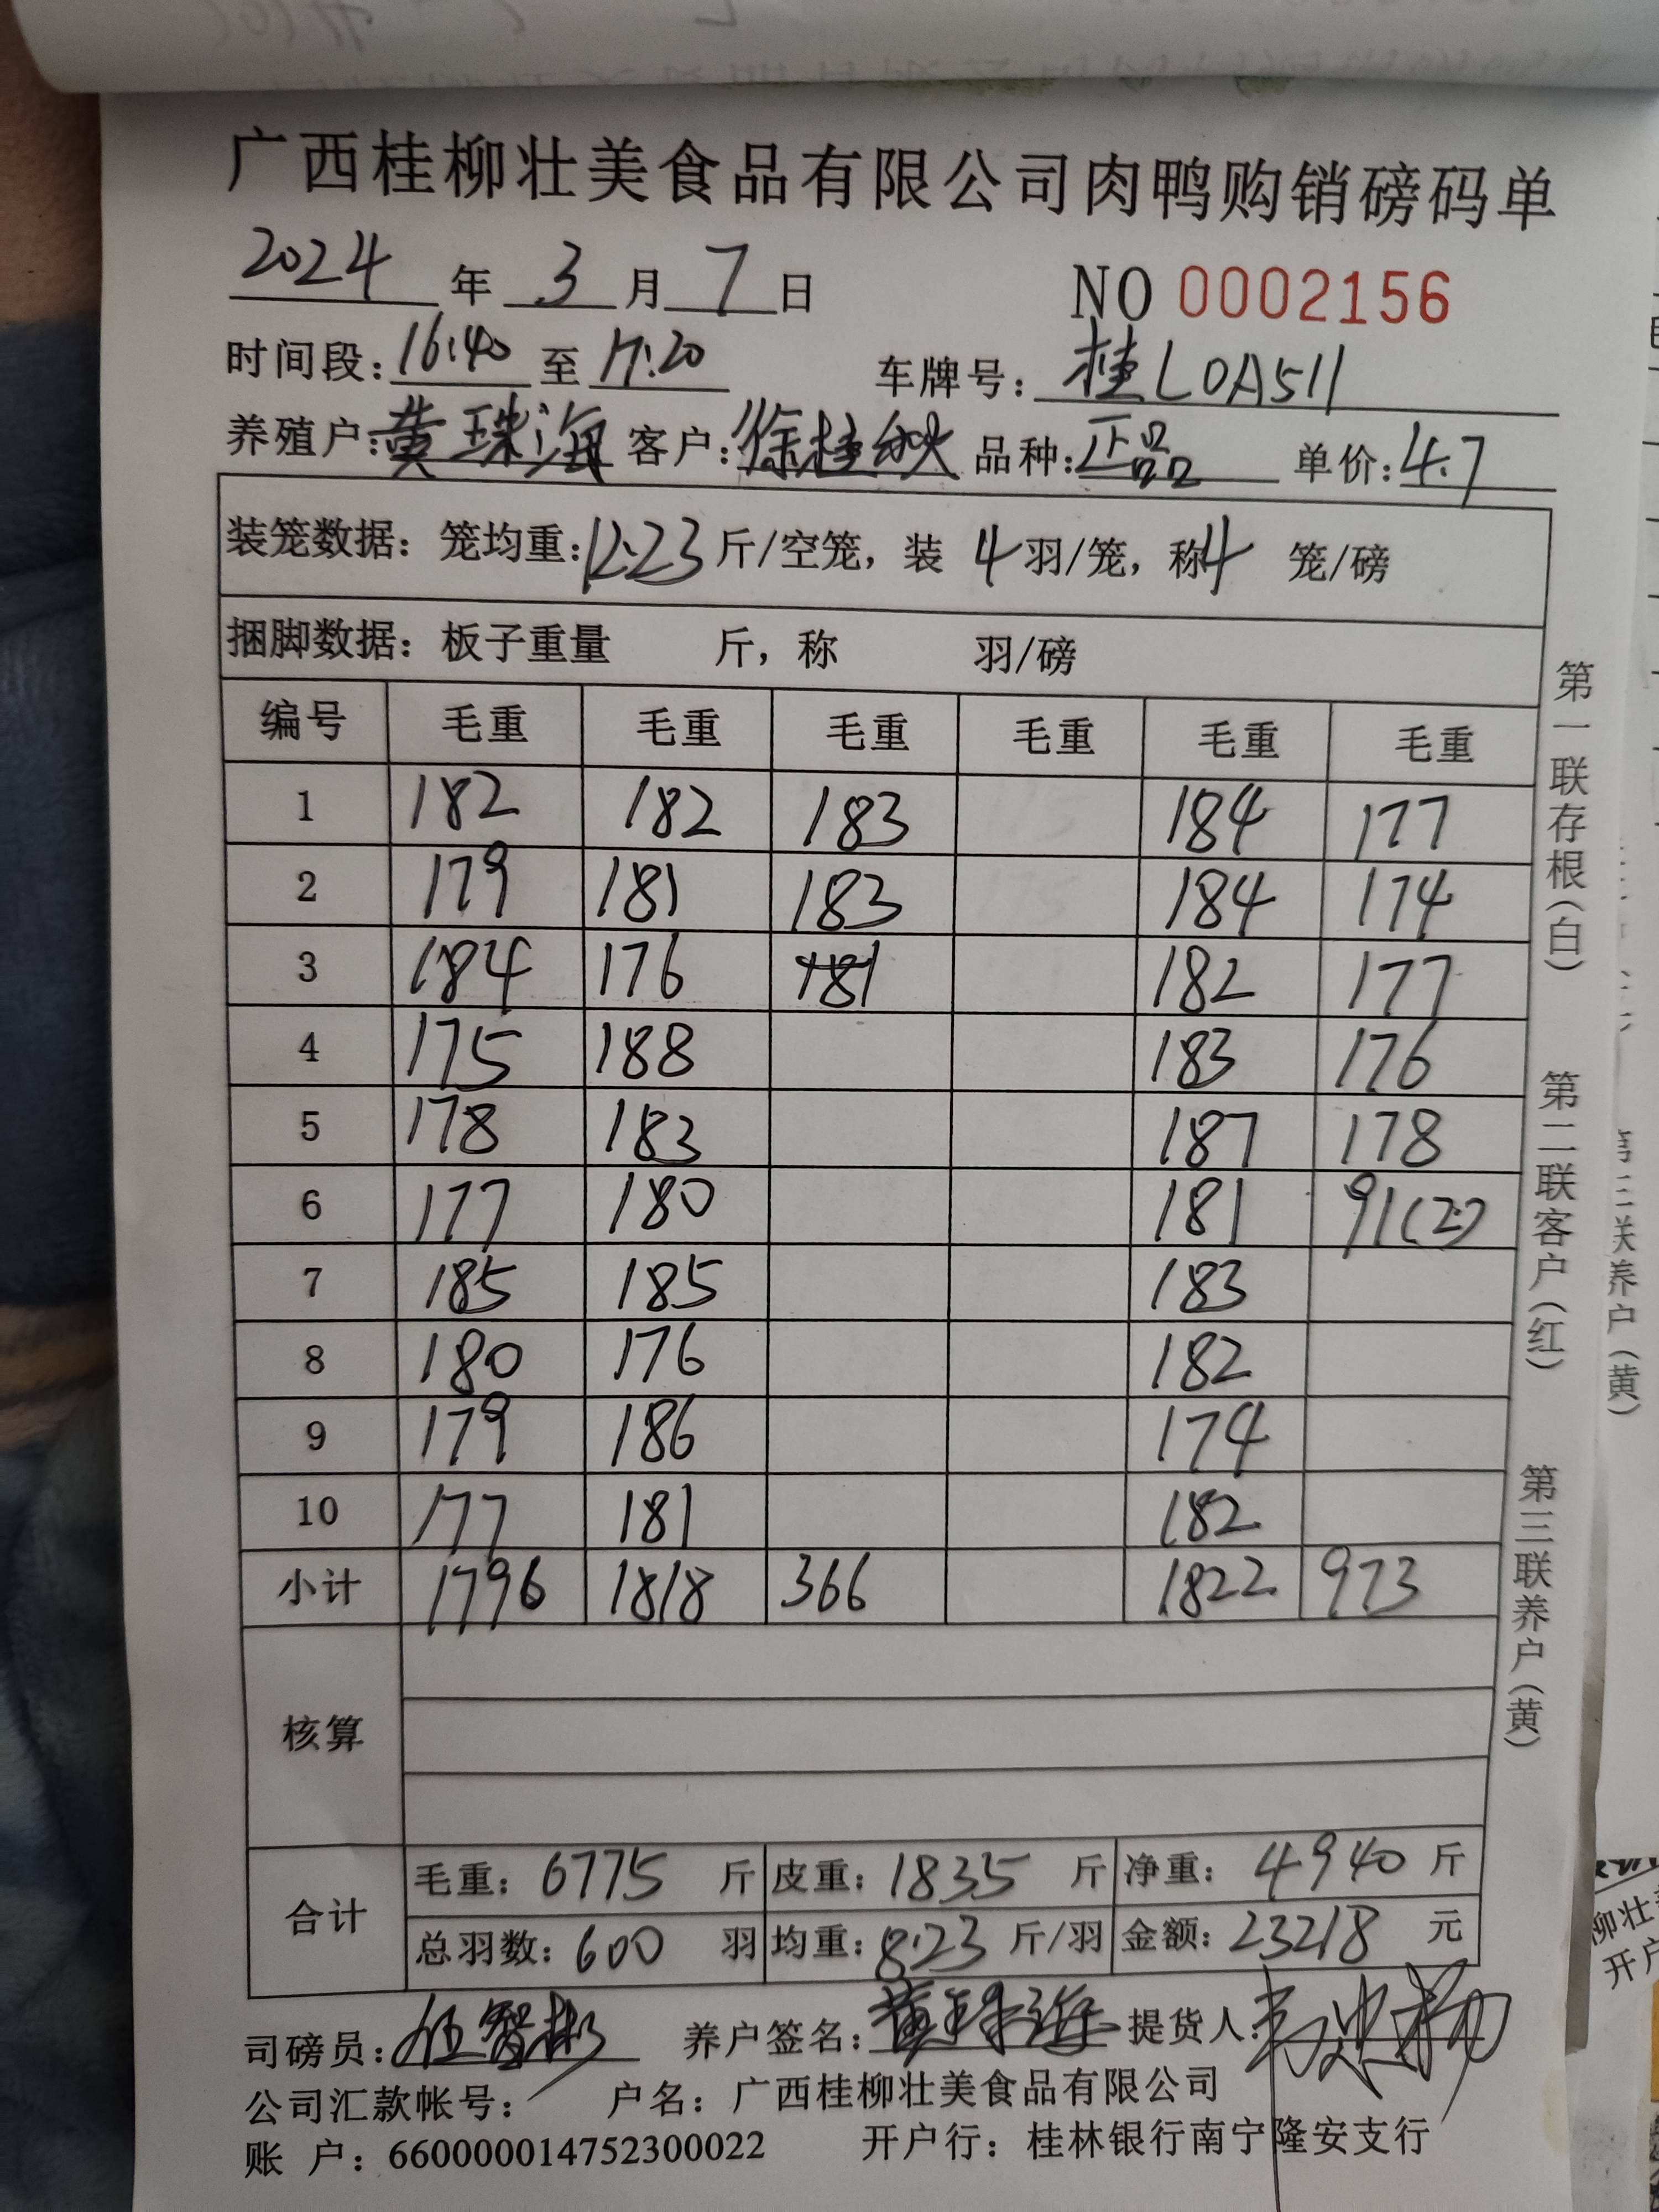 广西桂柳壮美食品有限公司肉鸭购销磅码单
2024 年 3 月 7 日 NO 0002156
时间段: 16:40 至 17:20 车牌号: 桂L0A511
养殖户: 黄珠海 客户: 徐桂秋 品种: 正品 单价: 4.7
装笼数据: 笼均重: 12.23 斤/空笼, 装 4 羽/笼, 称 4 笼/磅
捆脚数据: 板子重量 斤, 称 羽/磅
编号 毛重 毛重 毛重 毛重 毛重 毛重
1 182 182 183 184 177
2 179 181 183 184 174
3 184 176 181 182 177
4 175 188 183 176
5 178 183 187 178
6 177 180 181 91(2)
7 185 185 183
8 180 176 182
9 179 186 174
10 177 181 182
小计 1796 1818 366 1822 973
核算
合计
毛重: 6775 斤 皮重: 1835 斤 净重: 4940 斤
总羽数: 600 羽 均重: 8.23 斤/羽 金额: 23218 元
司磅员: 伍智彬 养户签名: 黄珠海 提货人:
公司汇款帐号: 户名: 广西桂柳壮美食品有限公司
账 户: 660000014752300022 开户行: 桂林银行南宁隆安支行
第一联存根(白) 第二联客户(红) 第三联养户(黄)
第三联养户(黄)
柳壮
开户